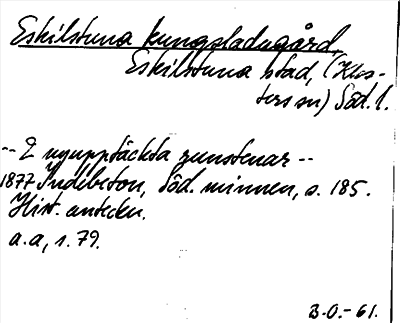 Eskilstuna kungsladugård,
Eskilstuna stad, (Klos-
ters sn) Söd. l.
-- 2 nyupptäckta runstenar --
1877 Indebetou, Söd. minnen, s. 185.
Hist. anteckn.
a.a, s. 79.
B.O. - 61.